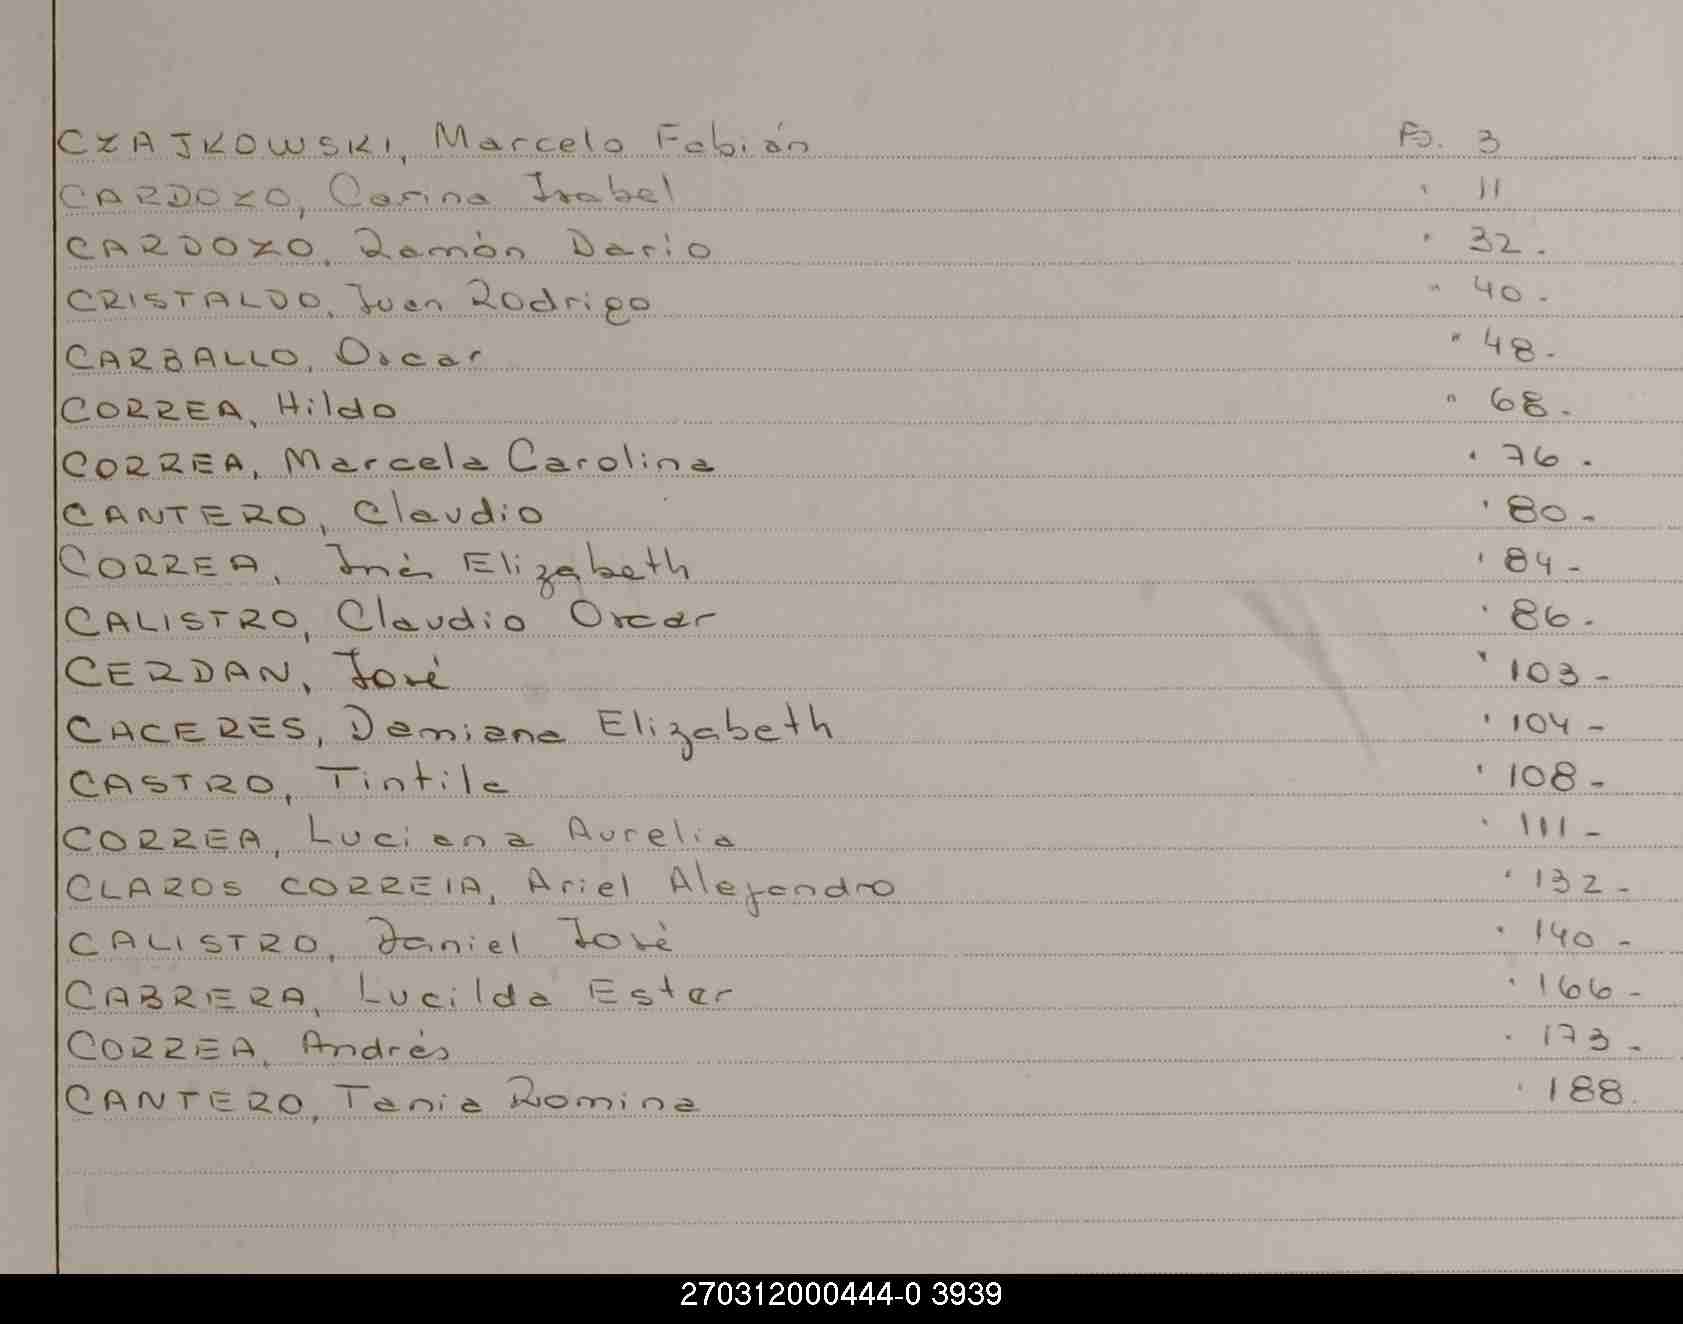 CZAJKOWSKI, Marcelo Fabián Fs. 3
CARDOZO, Carina Isabel " 11
CARDOZO, Ramón Dario " 32.
CRISTALDO, Juan Rodrigo " 40.
CARBALLO, Oscar " 48.
CORREA, Hildo " 68.
CORREA, Marcela Carolina " 76.
CANTERO, Claudio " 80-
CORREA, Inés Elizabeth " 84-
CALISTRO, Claudio Oscar " 86.
CERDAN, José " 103-
CACERES, Damiana Elizabeth " 104-
CASTRO, Tintila " 108-
CORREA, Luciana Aurelia " 111-
CLAROS CORREIA, Ariel Alejandro " 132-
CALISTRO, Daniel José " 140-
CABRERA, Lucilda Ester " 166-
CORREA, Andrés " 173-
CANTERO, Tania Romina " 188.
270312000444-0 3939